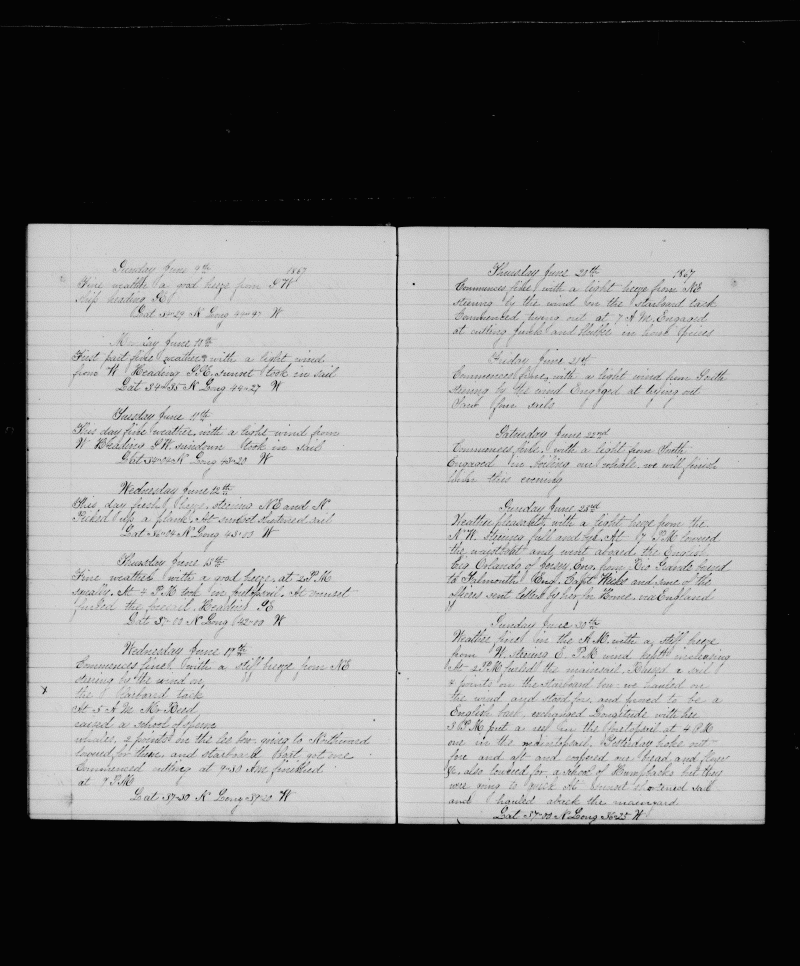 Sunday June 9th 1867
Fine weather a good breeze from S W
ship heading SE
Lat 34-29 N Long 44-97 W
Monday June 10th
First part fine weather with a light wind
from W Heading S.E. sunset took in sail
Lat 34-35 N Long 44-27 W
Tuesday June 11th
This day fine weather with a light wind from
W Heading SW. sundown took in sail
Lat 34-04 N Long 43-20 W
Wednesday June 12th
This day fresh breeze steering NE and N
Picked up a plank. At sunset shortened sail
Lat 35-04 N Long 43-03 W
Thursday June 13th
Fine weather with a good breeze at 2 P.M.
squally. At 4 P.M took in foretopsail. At sunset
furled the foresail. Heading SE
Lat 37-00 N Long 42-00 W
Wednesday June 19th
Commences fine with a stiff breeze from NE
steering by the wind on
the larboard tack
At 5 A M Mr Reed
raised a school of sperm
whales, 2 points on the lee bow, going to Northward
lowered for them and starboard boat got one
Commenced cutting at 9-30 A.M. finished
at 7 P.M
Lat 37-30 N Long 39-20 W
Thursday June 20th 1867
Commences fine with a light breeze from NE
steering by the wind on the starboard tack
Commenced trying out at 7 A M. Engaged
at cutting Junk and Blubber in horse pieces
Friday June 21st
Commences fine with a light wind from South
steering by the wind Engaged at trying out
Clew from sails
Saturday June 22nd
Commences fine, with a light from North
Engaged in boiling our whale. we will finish
this evening
Sunday June 23d
Weather pleasant, with a light breeze from the
N W. steering full and bye. At 7 P.M lowered
the waistboat and went aboard the English
brig Orlando of Jersey, Eng. from Rio Grande bound
to Falmouth Eng. Capt Weeks and some of the
officers sent letters by her, for home, via England
Sunday June 30th
Weather fine in the A M. with a stiff breeze
from W. steering E. P.M wind light increasing
At 2 P.M furled the mainsail. Raised a sail
4 points on the starboard bow. we hauled on
the wind and stood for, and proved to be a
English bark, exchanged Longitude with her
3 P.M put a reef in the foretopsail at 4 P.M
one in the maintopsail. Yesterday hoks out
fore and aft and coopered our bread and flour
&c. also lowered for a school of Humpbacks but they
were going to quick At sunset shortened sail
and hauled aback the mainyard
Lat 37-00 N Long 36-25 W